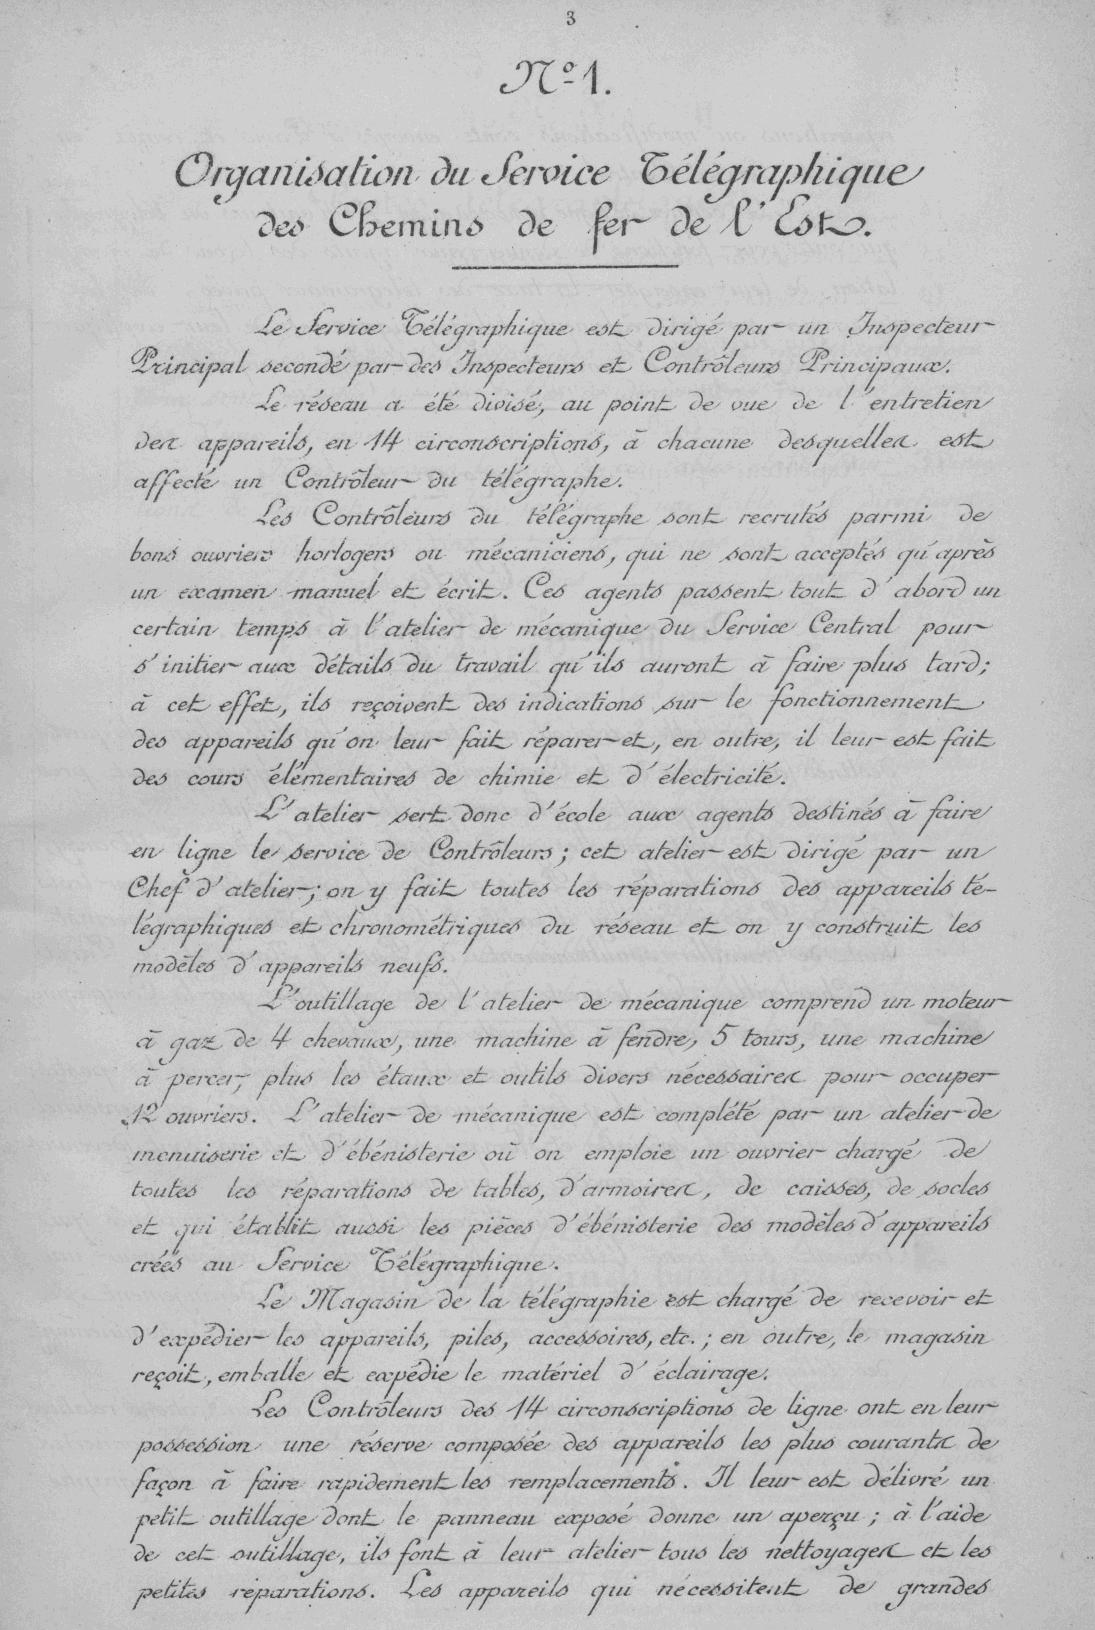 3
Nº 1.
Organisation du Service Télégraphique
des Chemins de fer de l'Est.
Le Service Télégraphique est dirigé par un Inspecteur
Principal secondé par des Inspecteurs et Contrôleurs Principaux.
Le réseau a été divisé, au point de vue de l'entretien
des appareils, en 14 circonscriptions, à chacune desquelles est
affecté un Contrôleur du télégraphe.
Les Contrôleurs du télégraphe sont recrutés parmi de
bons ouvriers horlogers ou mécaniciens, qui ne sont acceptés qu'après
un examen manuel et écrit. Ces agents passent tout d'abord un
certain temps à l'atelier de mécanique du Service Central pour
s'initier aux détails du travail qu'ils auront à faire plus tard;
à cet effet, ils reçoivent des indications sur le fonctionnement
des appareils qu'on leur fait réparer et, en outre, il leur est fait
des cours élémentaires de chimie et d'électricité.
L'atelier sert donc d'école aux agents destinés à faire
en ligne le service de Contrôleurs; cet atelier est dirigé par un
Chef d'atelier; on y fait toutes les réparations des appareils té-
légraphiques et chronométriques du réseau et on y construit les
modèles d'appareils neufs.
L'outillage de l'atelier de mécanique comprend un moteur
à gaz de 4 chevaux, une machine à fendre, 5 tours, une machine
à percer, plus les étaux et outils divers nécessaires pour occuper
12 ouvriers. L'atelier de mécanique est complété par un atelier de
menuiserie et d'ébénisterie où on emploie un ouvrier chargé de
toutes les réparations de tables, d'armoires, de caisses, de socles
et qui établit aussi les pièces d'ébénisterie des modèles d'appareils
créés au Service Télégraphique.
Le Magasin de la télégraphie est chargé de recevoir et
d'expédier les appareils, piles, accessoires, etc.; en outre, le magasin
reçoit, emballe et expédie le matériel d'éclairage.
Les Contrôleurs des 14 circonscriptions de ligne ont en leur
possession une réserve composée des appareils les plus courants de
façon à faire rapidement les remplacements. Il leur est délivré un
petit outillage dont le panneau exposé donne un aperçu; à l'aide
de cet outillage, ils font à leur atelier tous les nettoyages et les
petites réparations. Les appareils qui nécessitent de grandes